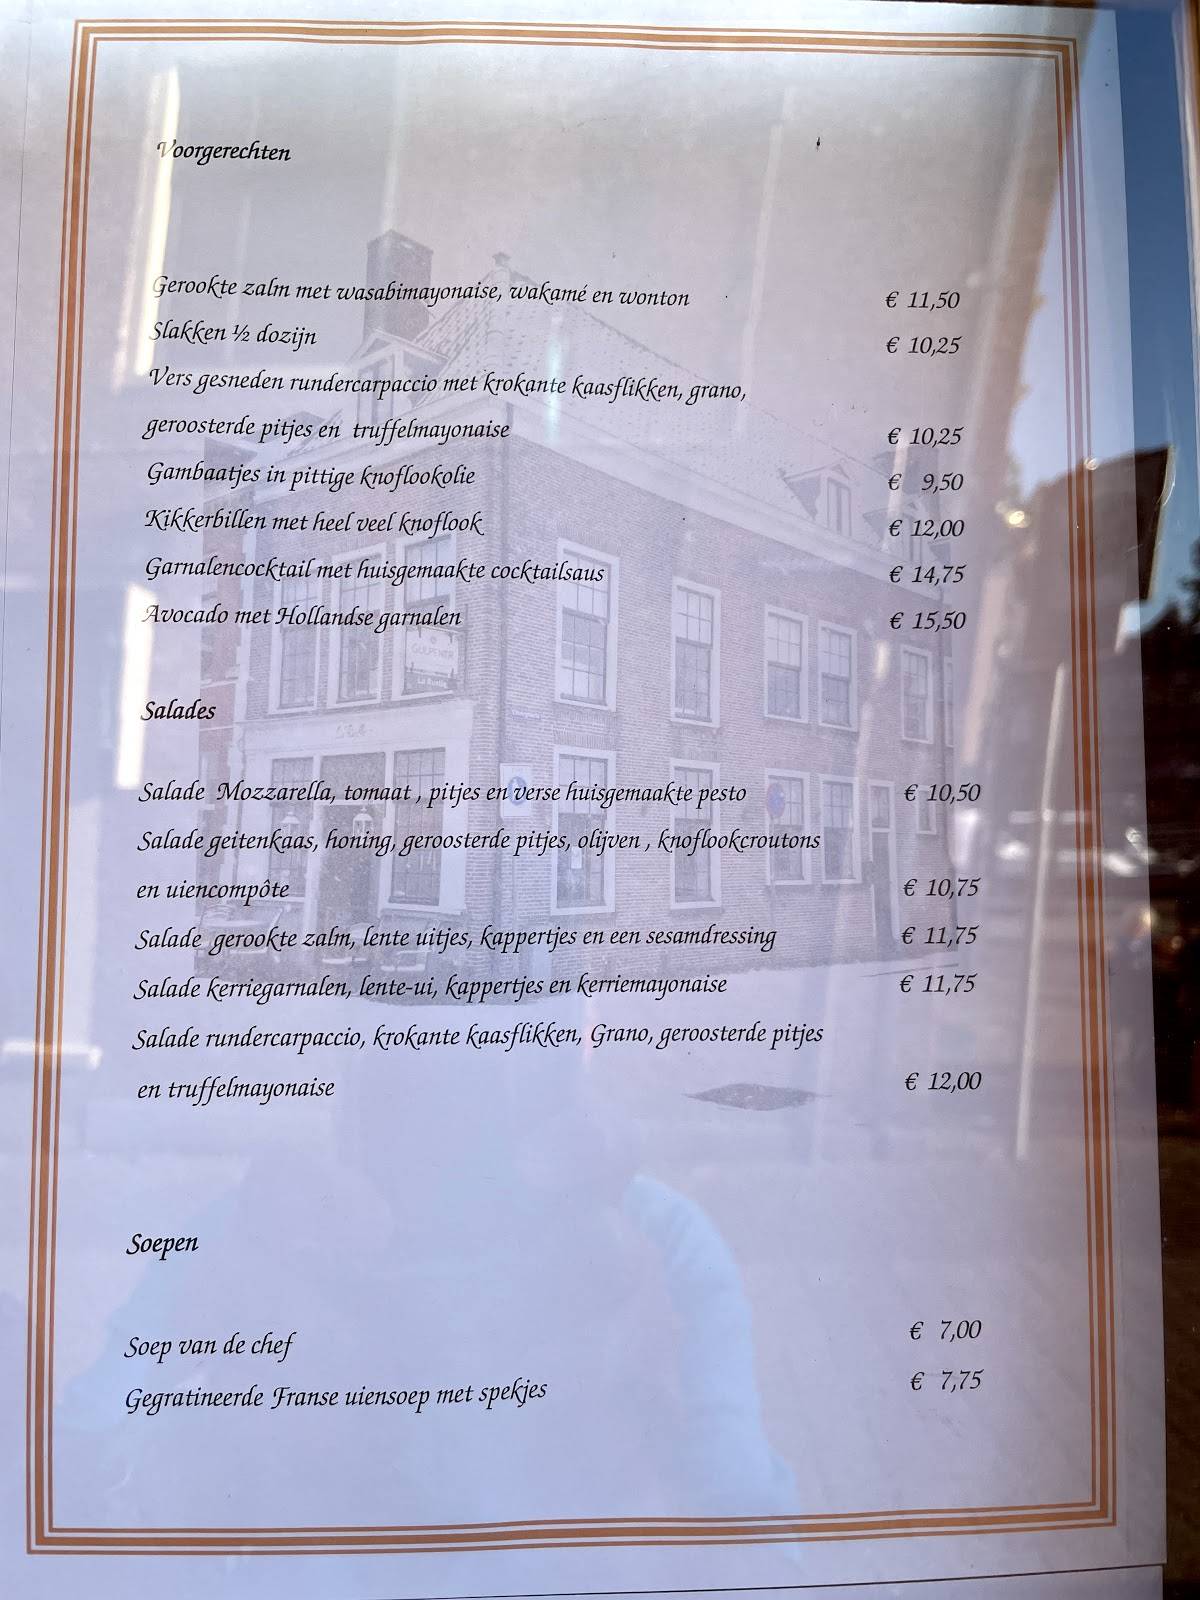 Voorgerechten
Gerookte zalm met wasabimayonaise, wakamé en wonton € 11,50
Slakken ½ dozijn € 10,25
Vers gesneden rundercarpaccio met krokante kaasflikken, grano,
geroosterde pitjes en truffelmayonaise € 10,25
Gambaatjes in pittige knoflookolie € 9,50
Kikkerbillen met heel veel knoflook € 12,00
Garnalencocktail met huisgemaakte cocktailsaus € 14,75
Avocado met Hollandse garnalen € 15,50
GULPENER
Salades
Salade Mozzarella, tomaat , pitjes en verse huisgemaakte pesto € 10,50
Salade geitenkaas, honing, geroosterde pitjes, olijven , knoflookcroutons
en uiencompôte € 10,75
Salade gerookte zalm, lente uitjes, kappertjes en een sesamdressing € 11,75
Salade kerriegarnalen, lente-ui, kappertjes en kerriemayonaise € 11,75
Salade rundercarpaccio, krokante kaasflikken, Grano, geroosterde pitjes
en truffelmayonaise € 12,00
Soepen
Soep van de chef € 7,00
Gegratineerde Franse uiensoep met spekjes € 7,75